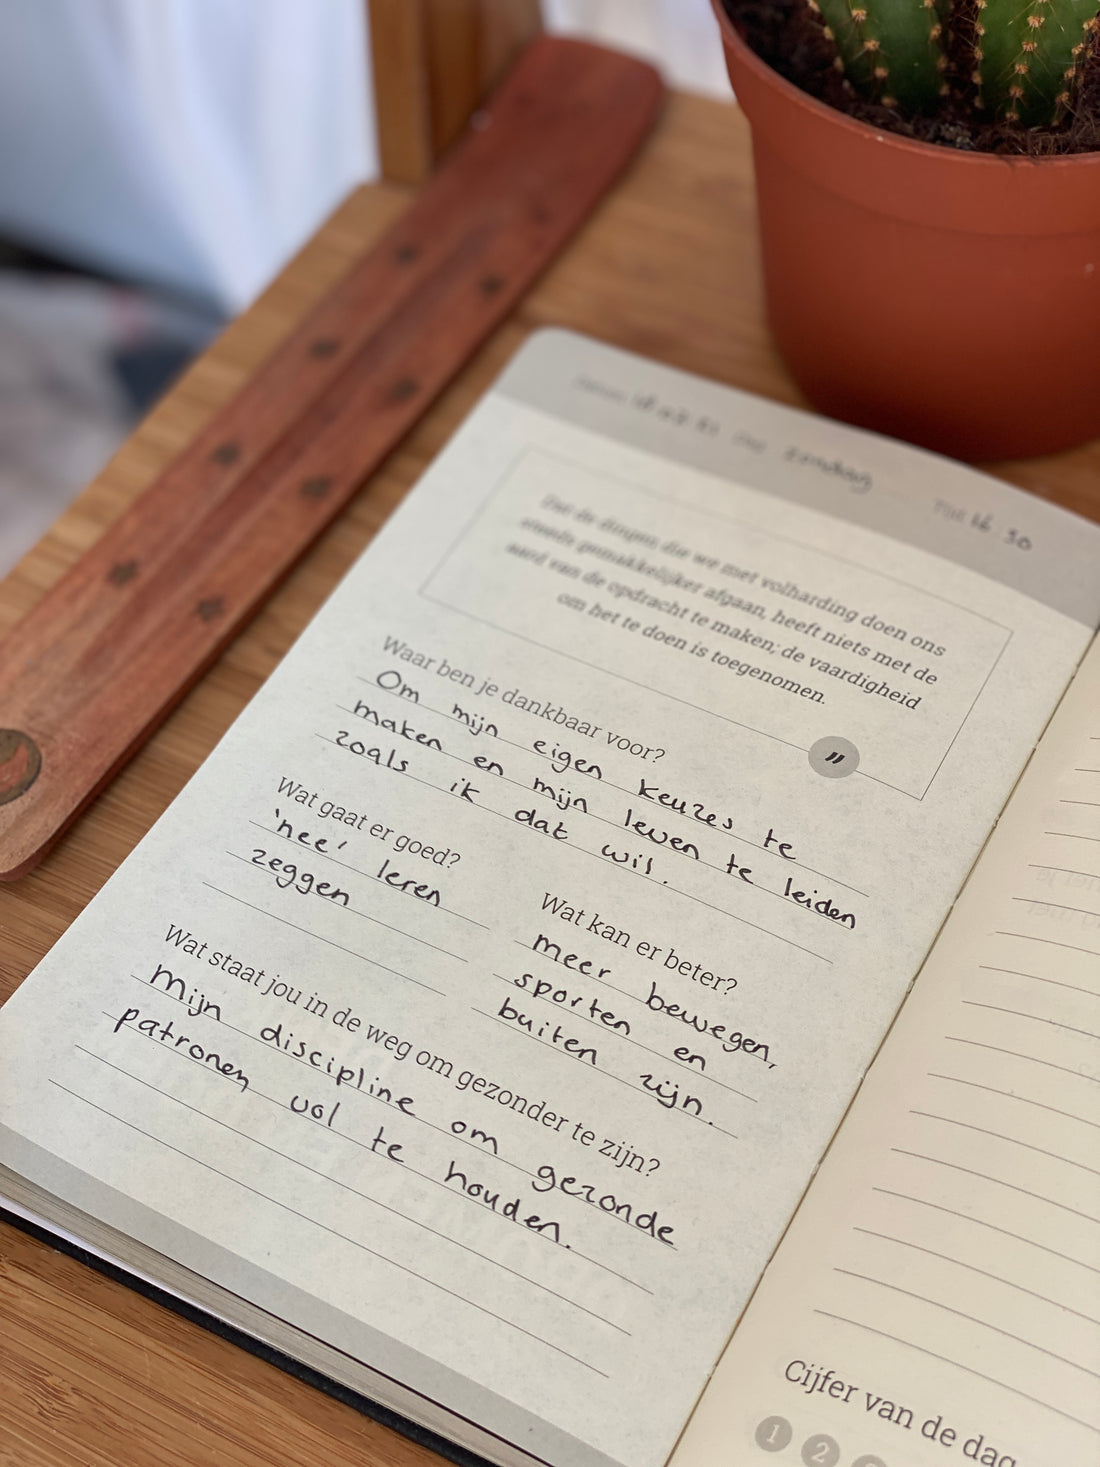 zondag
Tijd 16 30
Dat de dingen die we met volharding doen ons
steeds gemakkelijker afgaan, heeft niets met de
aard van de opdracht te maken; de vaardigheid
om het te doen is toegenomen.
"
Waar ben je dankbaar voor?
Om mijn eigen keuzes te
maken en mijn leven te leiden
zoals ik dat wil.
Wat gaat er goed?
'nee' leren
zeggen
Wat kan er beter?
meer bewegen,
sporten en
buiten zijn.
Wat staat jou in de weg om gezonder te zijn?
Mijn discipline om gezonde
patronen vol te houden.
Cijfer van de dag
1 2